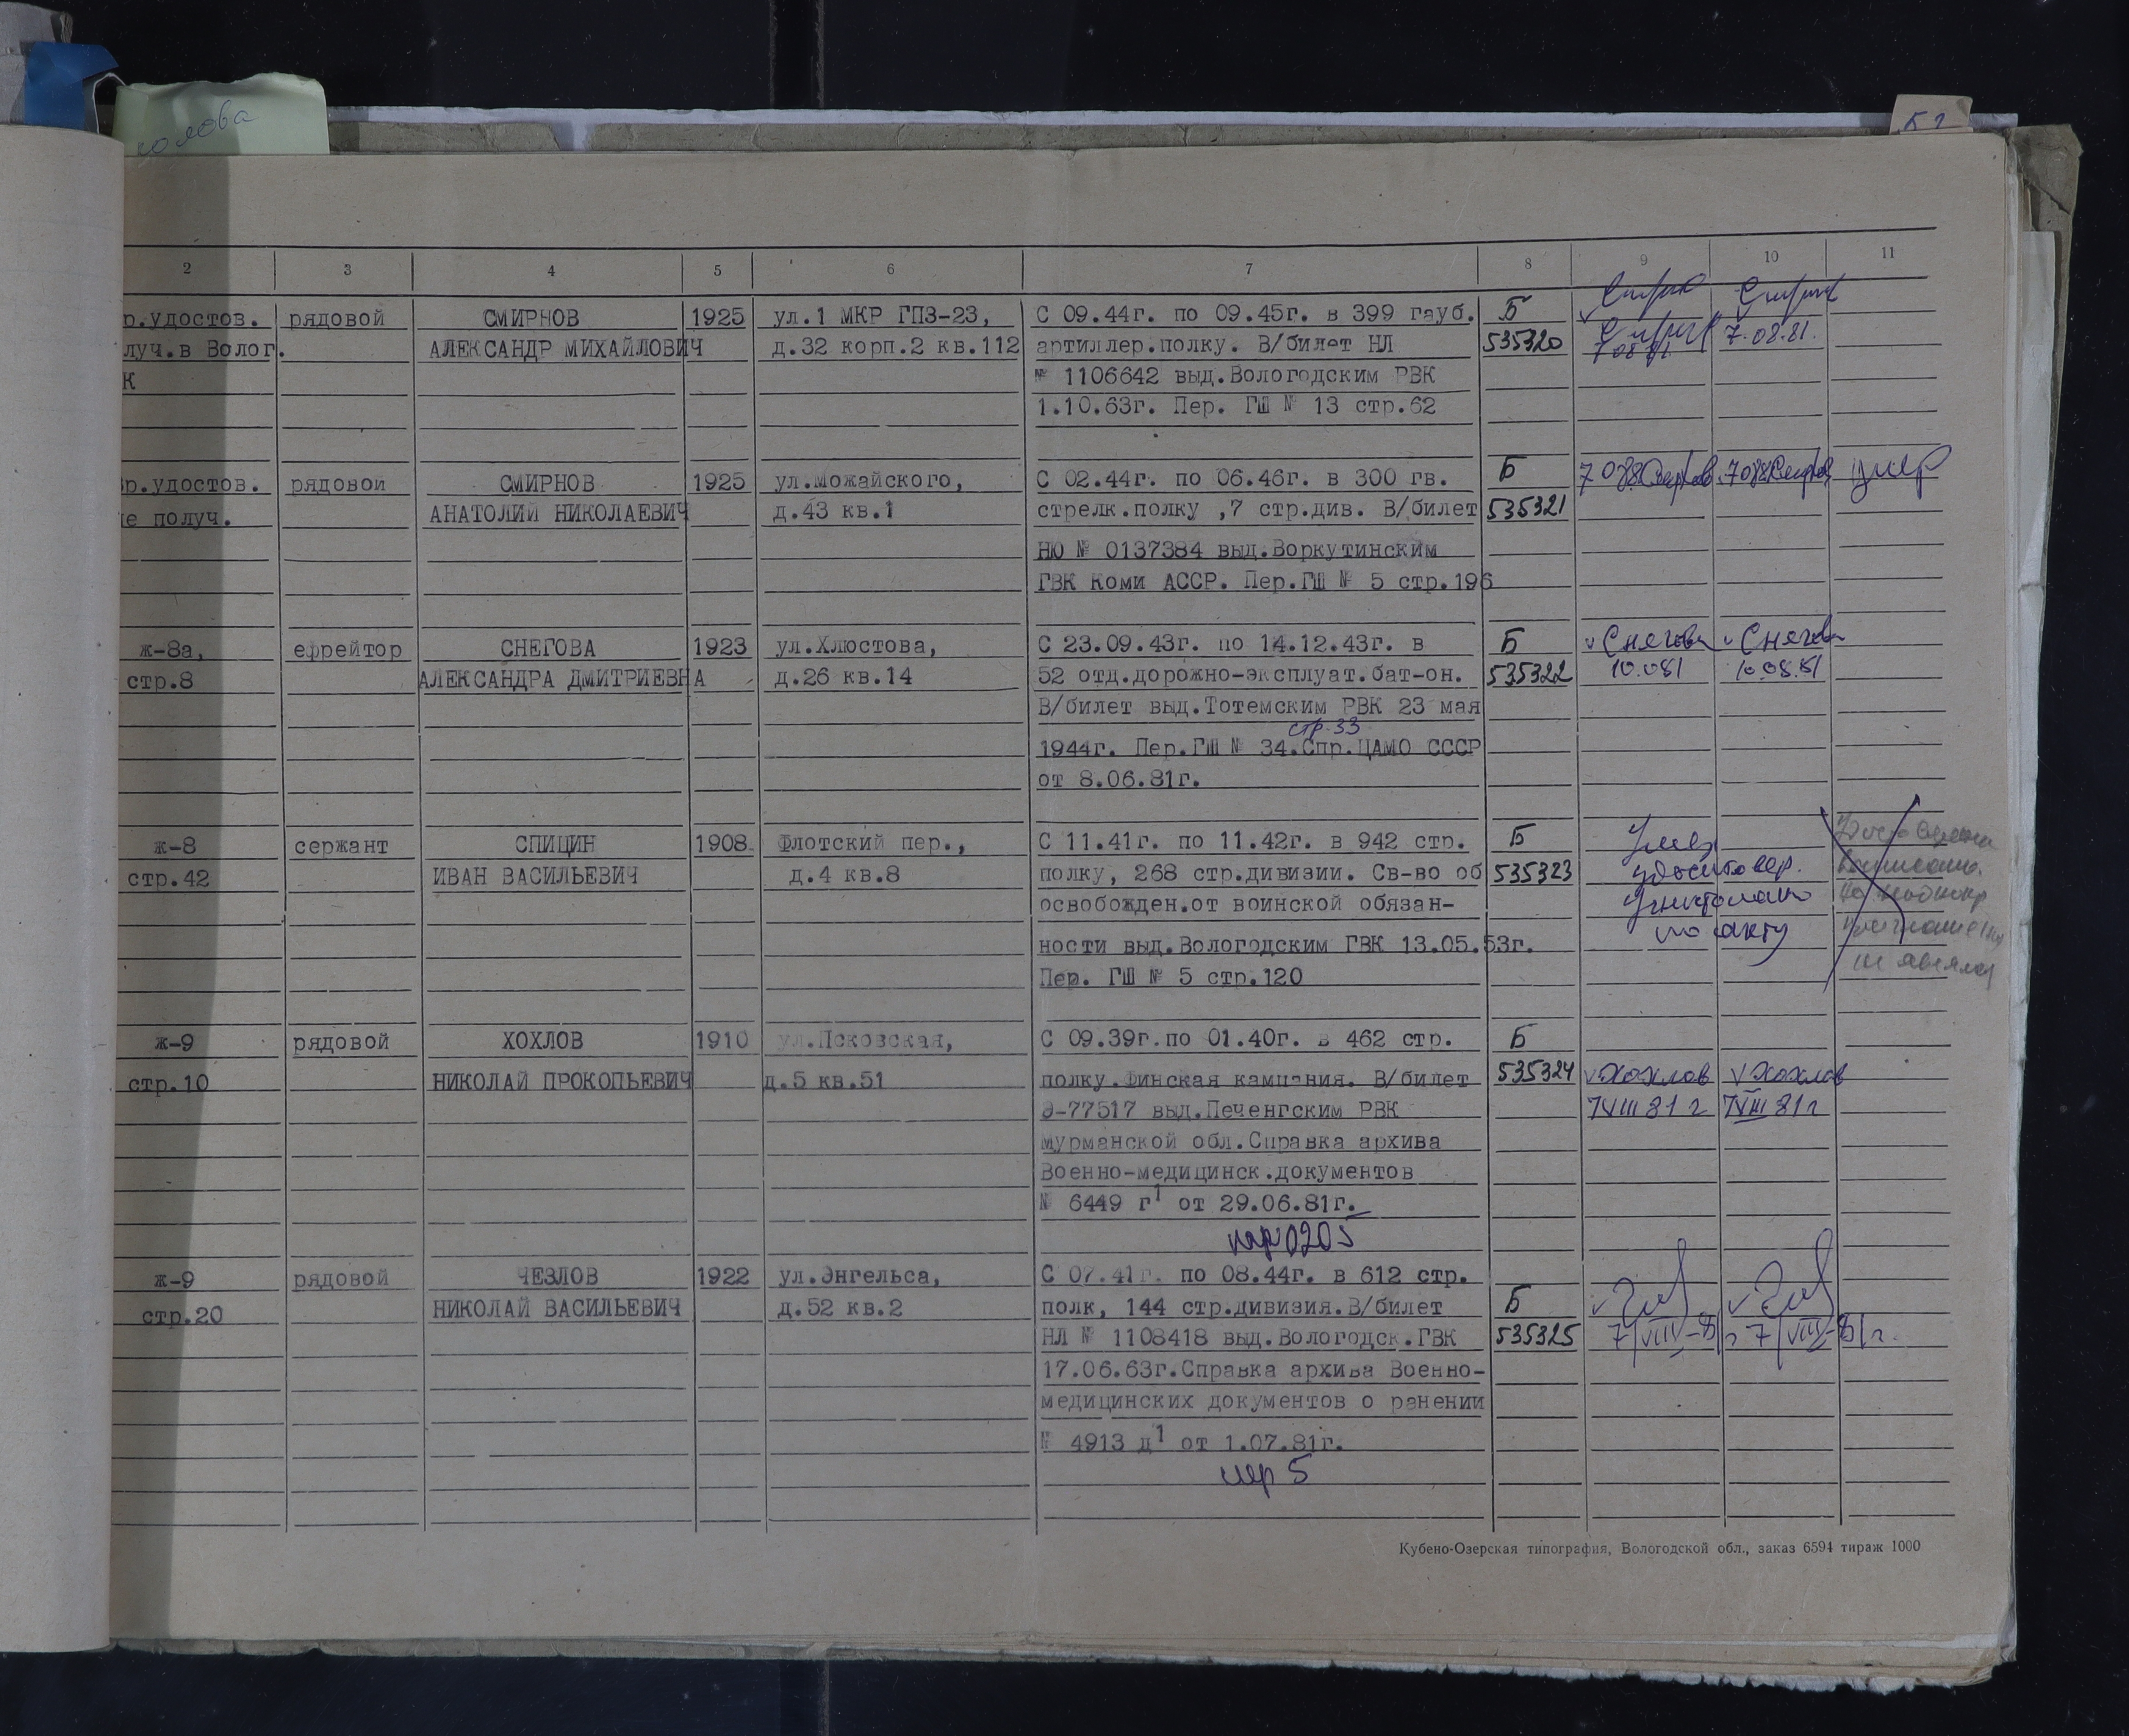 колова
2 3 4 5 6 7 8 9 10 11
р.удостов. рядовой СМИРНОВ 1925 ул.1 МКР ГПЗ-23, С 09.44г. по 09.45г. в 399 гауб. Б
луч.в Волог. АЛЕКСАНДР МИХАЙЛОВИЧ д.32 корп.2 кв.112 артиллер.полку. В/билет НЛ 535320 7.08.81.
К № 1106642 выд.Вологодским РВК
1.10.63г. Пер. ГШ № 13 стр.62
р.удостов. рядовой СМИРНОВ 1925 ул.Можайского, С 02.44г. по 06.46г. в 300 гв. Б умер
е получ. АНАТОЛИЙ НИКОЛАЕВИЧ д.43 кв.1 стрелк.полку ,7 стр.див. В/билет 535321
НЮ № 0137384 выд.Воркутинским
ГВК Коми АССР. Пер.ГШ № 5 стр.196
ж-8а, ефрейтор СНЕГОВА 1923 ул.Хлюстова, С 23.09.43г. по 14.12.43г. в Б Снегова Снегова
стр.8 АЛЕКСАНДРА ДМИТРИЕВНА д.26 кв.14 52 отд.дорожно-эксплуат.бат-он. 535322 10.081 10.08.81
В/билет выд.Тотемским РВК 23 мая
стр.33
1944г. Пер.ГШ № 34.Спр.ЦАМО СССР
от 8.06.81г.
ж-8 сержант СПИЦИН 1908 Флотский пер., С 11.41г. по 11.42г. в 942 стр. Б Умер
стр.42 ИВАН ВАСИЛЬЕВИЧ д.4 кв.8 полку, 268 стр.дивизии. Св-во об 535323 удостовер.
освобожден.от воинской обязан-
ности выд.Вологодским ГВК 13.05.53г. по акту
Пер. ГШ № 5 стр.120 не явился
ж-9 рядовой ХОХЛОВ 1910 ул.Псковская, С 09.39г.по 01.40г. в 462 стр. Б
стр.10 НИКОЛАЙ ПРОКОПЬЕВИЧ д.5 кв.51 полку.Финская кампания. В/билет 535324 v Хохлов v Хохлов
Э-77517 выд.Печенгским РВК 7 VIII 81 г 7 VIII 81 г
Мурманской обл.Справка архива
Военно-медицинск.документов
№ 6449 г1 от 29.06.81г.
пер 0205
ж-9 рядовой ЧЕЗЛОВ 1922 ул.Энгельса, С 07.41г. по 08.44г. в 612 стр. Б
стр.20 НИКОЛАЙ ВАСИЛЬЕВИЧ д.52 кв.2 полк, 144 стр.дивизия.В/билет
НЛ № 1108418 выд.Вологодск.ГВК 535325 7/VIII-81г 7/VIII-81г.
17.06.63г.Справка архива Военно-
медицинских документов о ранении
№ 4913 д1 от 1.07.81г.
пер 5
Кубено-Озерская типография, Вологодской обл., заказ 6594 тираж 1000